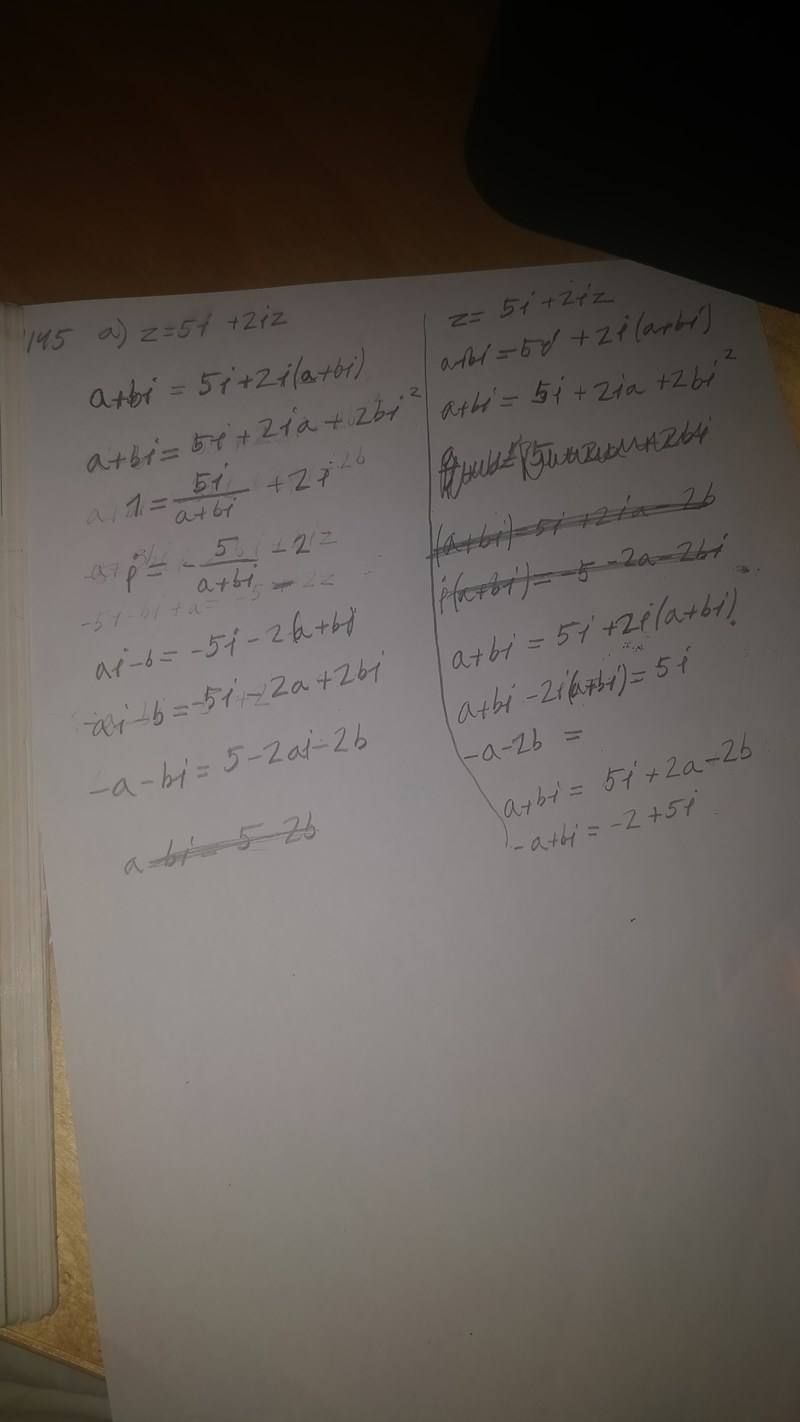 1145 a) z=5i +2iz
a+bi = 5i+2i(a+bi)
a+bi= 5i+2ia+2bi²
1= 5i/(a+bi) +2i
i= -5/(a+bi) -2
ai-b= -5i-2(a+bi)
ai-b=-5i-2a+2bi
-a-bi= 5-2ai-2b
a-bi= 5-2b
z= 5i+2iz
a+bi=5i+2i(a+bi)
a+bi= 5i+2ia+2bi²
(a+bi)=5i+2ia-2b
i(a+bi)= -5-2a-2bi
a+bi = 5i+2i(a+bi)
a+bi-2i(a+bi)= 5i
-a-2b =
a+bi= 5i+2a-2b
-a+bi= -2+5i